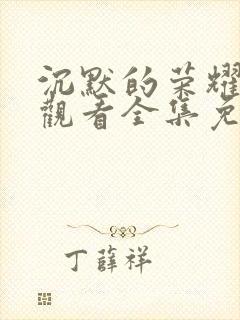 沉默的荣耀
觀看全集免
丁薛祥